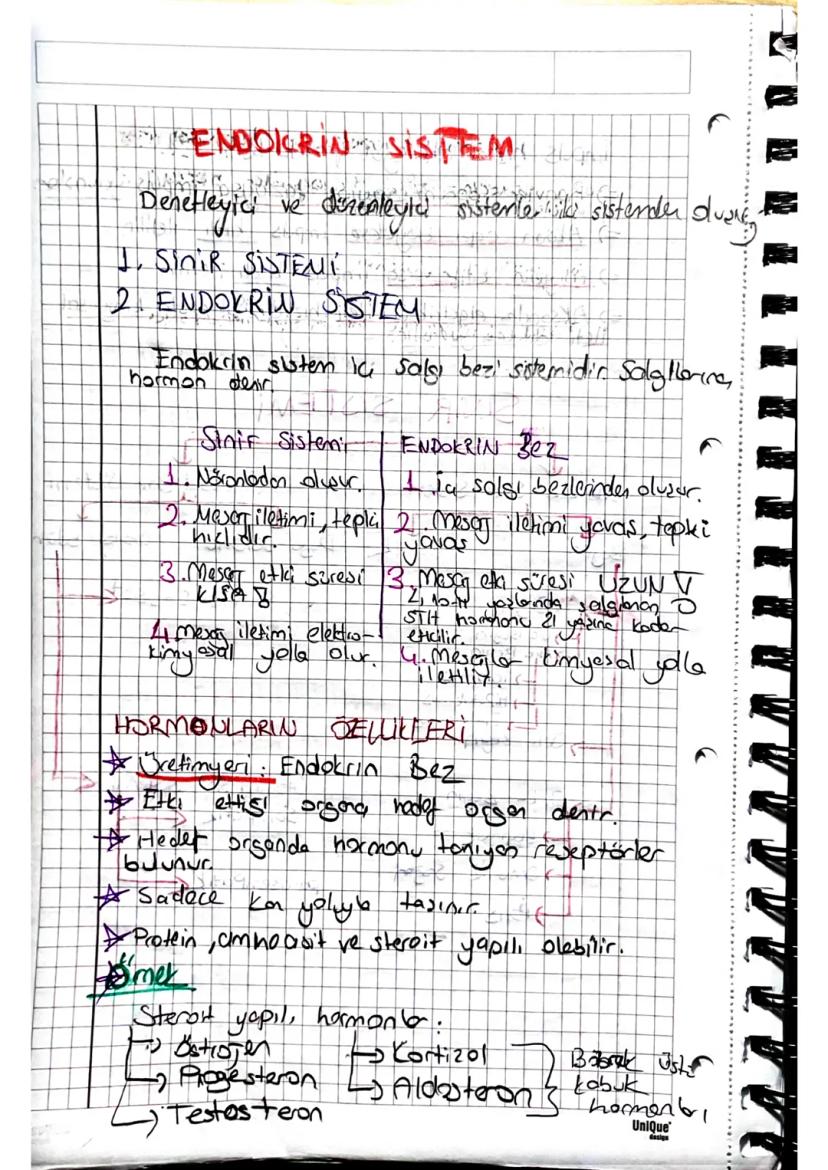 ENDOKRİN SİSTEM
Denetleyici ve düzenleyici sistemler iki sistemden oluşur
1. SİNİR SİSTEMİ
2. ENDOKRİN SİSTEM
Endokrin sistem iç salgı bezi sistemidir. Salgılarına,
hormon denir.
Sinir Sistemi
1. Nöronlardan oluşur.
2. Mesaj iletimi, tepki
hızlıdır.
3. Mesaj etki süresi
KISA
4. mesaj iletimi elektro-
kimyasal yolla olur.
ENDOKRİN Bez
1. İç salgı bezlerinden oluşur.
2. Mesaj iletimi yavaş, tepki
yavaş
3. Mesaj etki süresi UZUN
yaşlarında salgılanan
STH hormonu 21 yaşına kadar
etkilir.
4. Mesajlar kimyasal yolla
iletilir.
HORMONLARIN ÖZELLİKLERİ
Üretimyeri: Endokrin Bez
Etki ettiği organa hedef organ denir.
Hedef organda hormonu tanıyan reseptörler
bulunur.
Sadece kan yoluyla taşınır.
Protein, aminoasit ve steroit yapılı olabilir.
Örnek
Steroit yapılı hormonlar:
→ Östrojen
→ Progesteron
→ Testosteron
→ Kortizol
→ Aldosteron
Böbrek üstü
kabuk
hormonları
UniQue
design